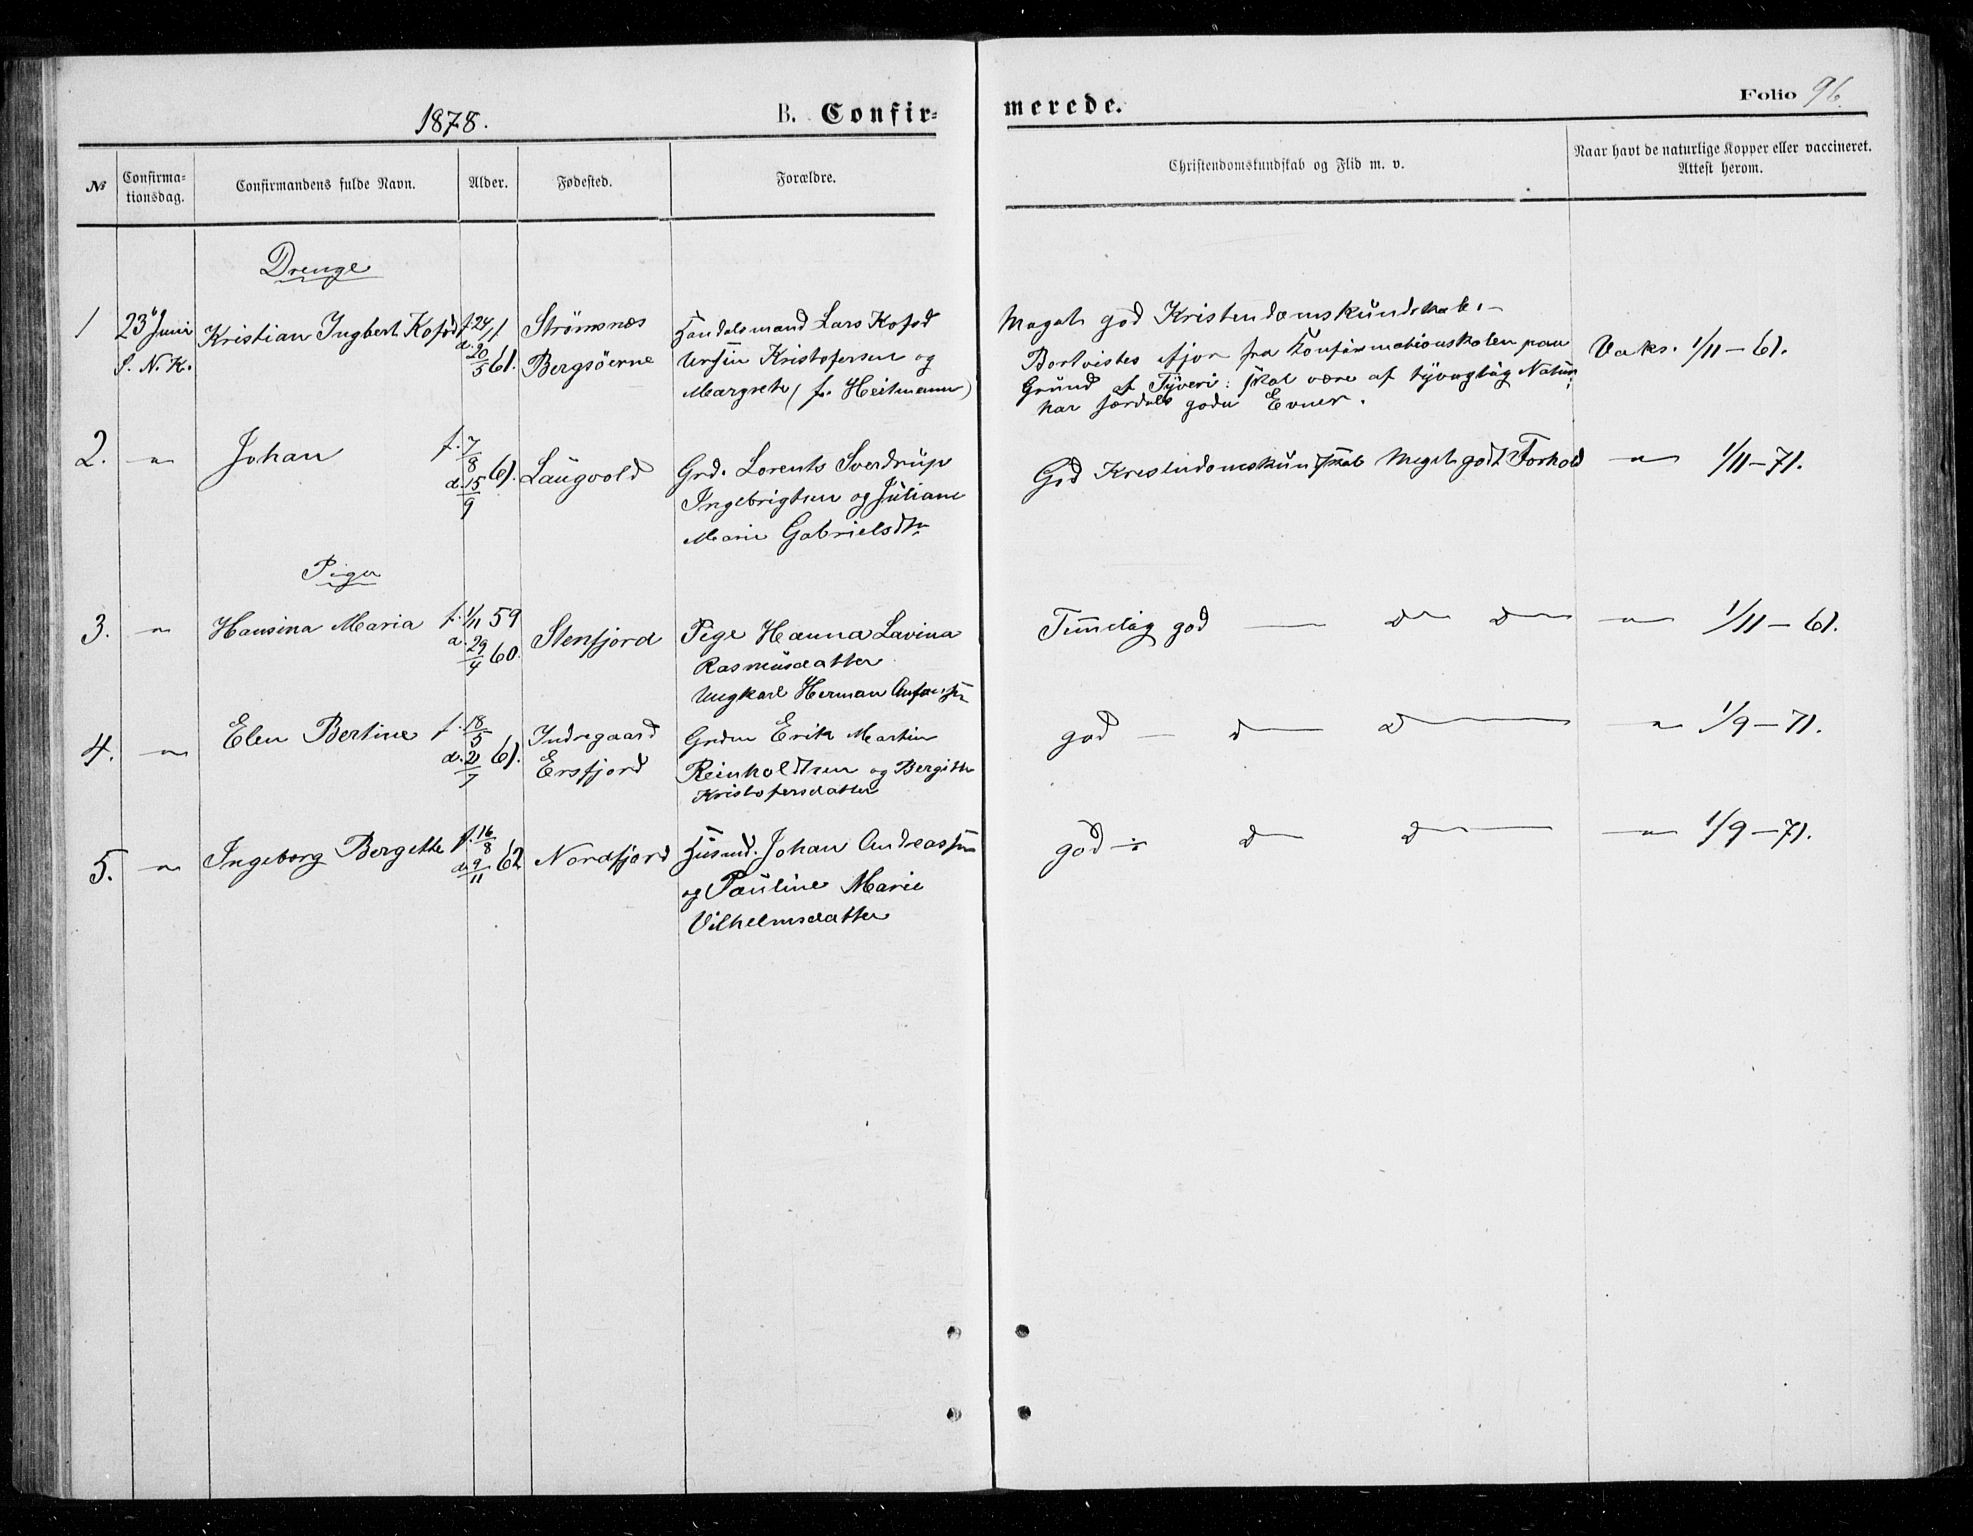 1878.
B. Confir-
merede.
Folio 96.
№
Confirma-
tionsdag.
Confirmandens fulde Navn.
Alder.
Fødested.
Forældre.
Christendomskundskab og Flid m. v.
Naar havt de naturlige Kopper eller vaccineret.
Attest herom.
Drenge
1 23 Juni Kristian Ingbert Kofod f. 24/1 Strömsnæs Handelsmand Lars Kofod Meget god Kristendomskundskab. –
S. N. K. d. 20/5 61. Bergsöerne Ursin Kristofersen og Bortvistes ifjor fra Konfirmationsskolen paa Vaks. 1/11 – 61.
Margrete (f. Heitmann) Grund af Tyveri: skal være af tyvagtig Natur;
har særdeles gode Evner.
2. – " – Johan f. 7/8 61. Laugvold Grd. Lorents Sverdrup God Kristendomskundskab Meget godt Forhold – " – 1/11 – 71.
d. 15/9 Ingebrigtsen og Juliane
Marie Gabrielsdtr
Piger
3. – " – Hansina Maria f. 1/11 59 Stenfjord Pige Hanna Lavina Temmelig god — D– D– – " – 1/11 – 61.
d. 29/4 60. Rasmusdatter
Ungkarl Herman
4. – " – Elen Bertine f. 18/5 Indregaard Grdm Erik Martin god – D– D– – " – 1/9 – 71.
d. 2/7 61. Ersfjord Reinholdtsen og Bergitte
Kristofersdatter
5. – " – Ingeborg Bergette f. 16/8 Nordfjord Husmd. Johan Andreassen god – D– D– – " – 1/9 – 71.
d. 9/11 62 og Pauline Marie
Vilhelmsdatter